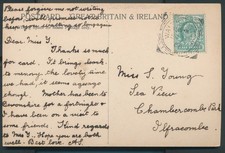 Please forgive me not writing
before
POSTCARD. GREAT BRITAIN & IRELAND.
Dear Miss Y.
Thanks so much
for card. It brings back to
memory the lovely time
we had, it seems ages
though. Mother has been to
Devonshire for a fortnight &
I have been on a visit to
some friends. Kind regards
to Mrs Y. Hope you are both
well. Best love.
Miss S. Young
Sea View
Chambercombe Park
Ilfracombe.